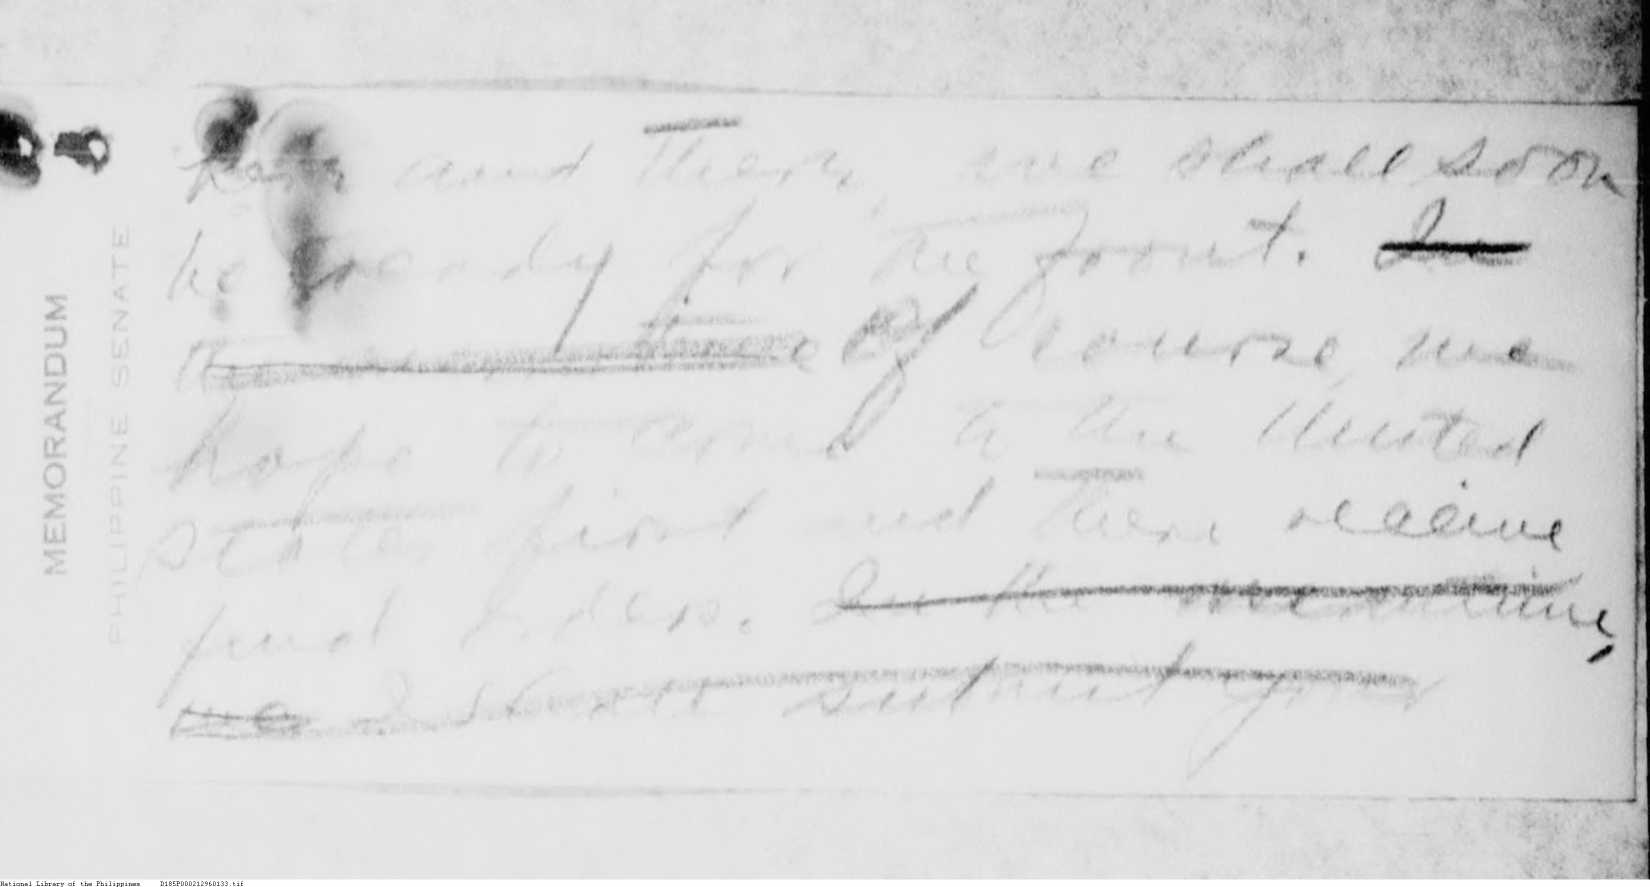 MEMORANDUM
PHILIPPINE SENATE
here and there, we shall soon
be ready for the front. In
the meantime Of course we
hope to send to the United
States first and there receive
final orders. In the meantime,
we I shall submit your
National Library of the Philippines D185P000212960133.tif